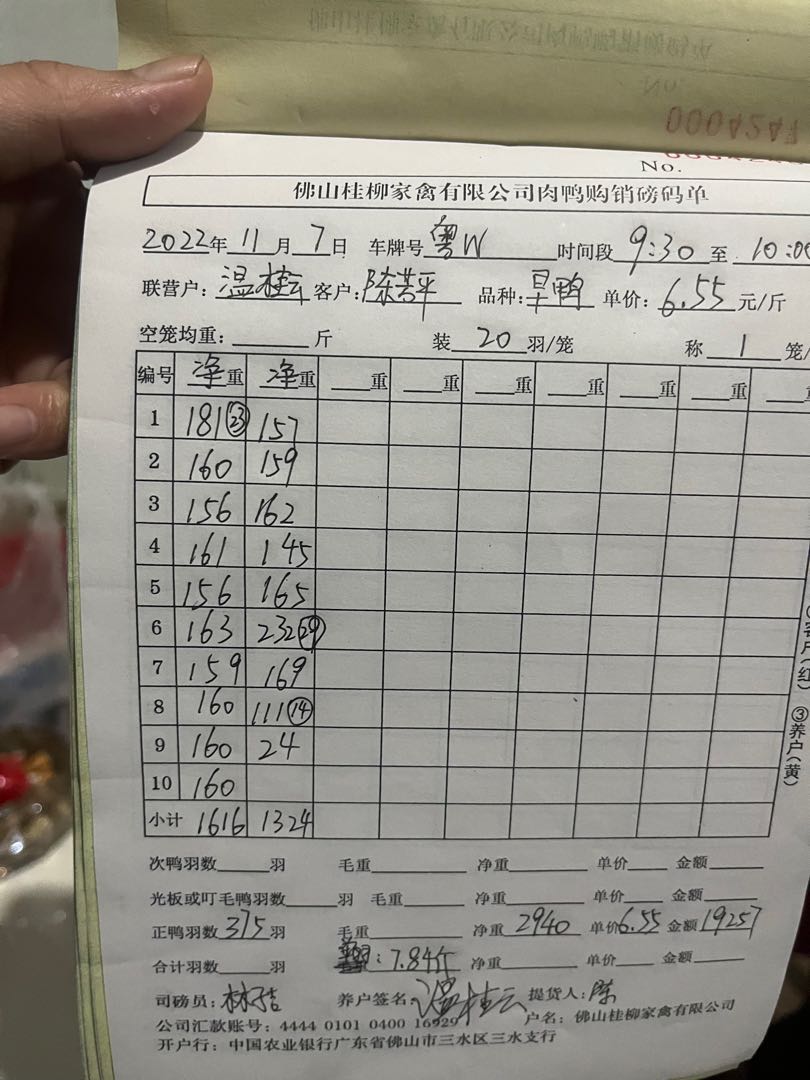 0004247
No.
佛山桂柳家禽有限公司肉鸭购销磅码单
2022年 11月 7日 车牌号 粤W 时间段 9:30 至 10:00
联营户：温桂云 客户：陈芸平 品种：旱鸭 单价：6.55 元/斤
空笼均重：______斤 装 20 羽/笼 称 1 笼/
编号 净重 净重 ___重 ___重 ___重 ___重 ___重 ___重
1 181 23 157
2 160 159
3 156 162
4 161 145
5 156 165
6 163 232 29
7 159 169
8 160 111 14
9 160 24
10 160
小计 1616 1324
次鸭羽数_____羽 毛重______ 净重______ 单价____ 金额______
光板或叮毛鸭羽数_____羽 毛重______ 净重______ 单价____ 金额______
正鸭羽数 375 羽 毛重______ 净重 2940 单价 6.55 金额 19257
合计羽数_____羽 : 7.84斤 净重______ 单价____ 金额______
司磅员： 养户签名：温桂云 提货人：陈
公司汇款账号：4444 0101 0400 16929 户名：佛山桂柳家禽有限公司
开户行：中国农业银行广东省佛山市三水区三水支行
(红) ③养户(黄)